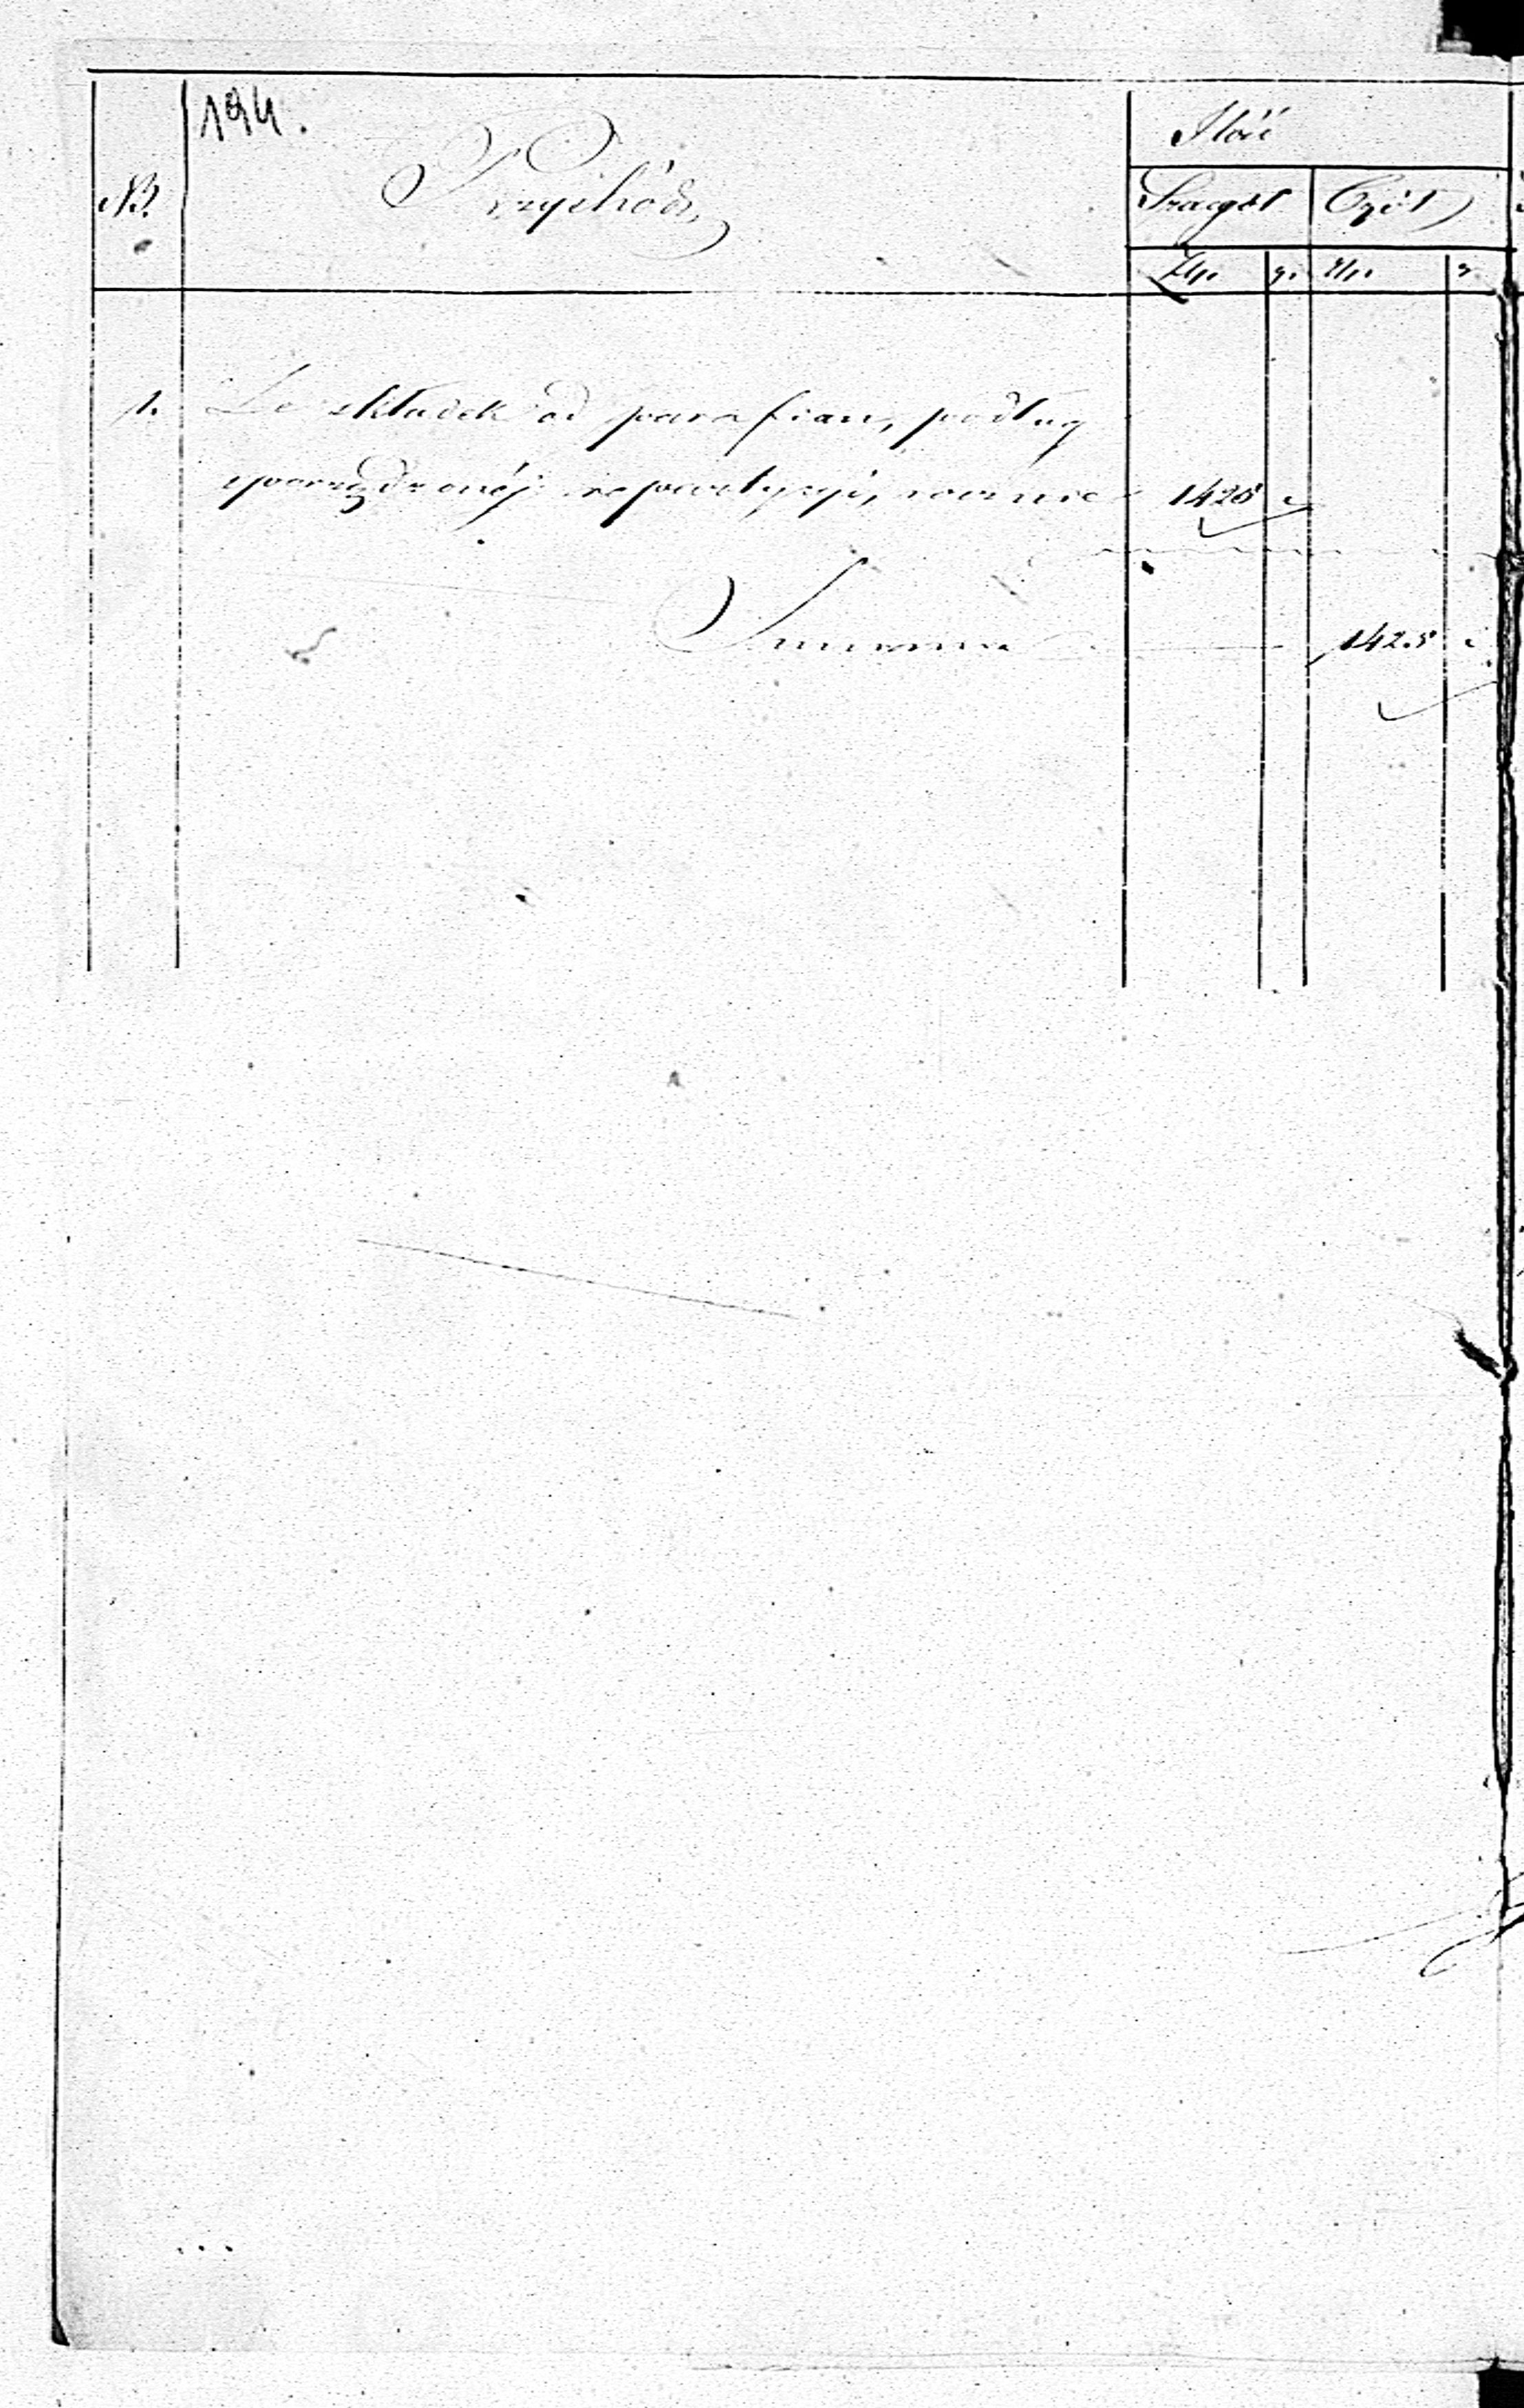 194.
Ilość
NB.
Przychód.
Szczegół
Ogół
Złp. gr. Złp. g
1. Ze składek od parafian, podług
sporządzonéj repartycyi, rocznie 1425
Summa 1425